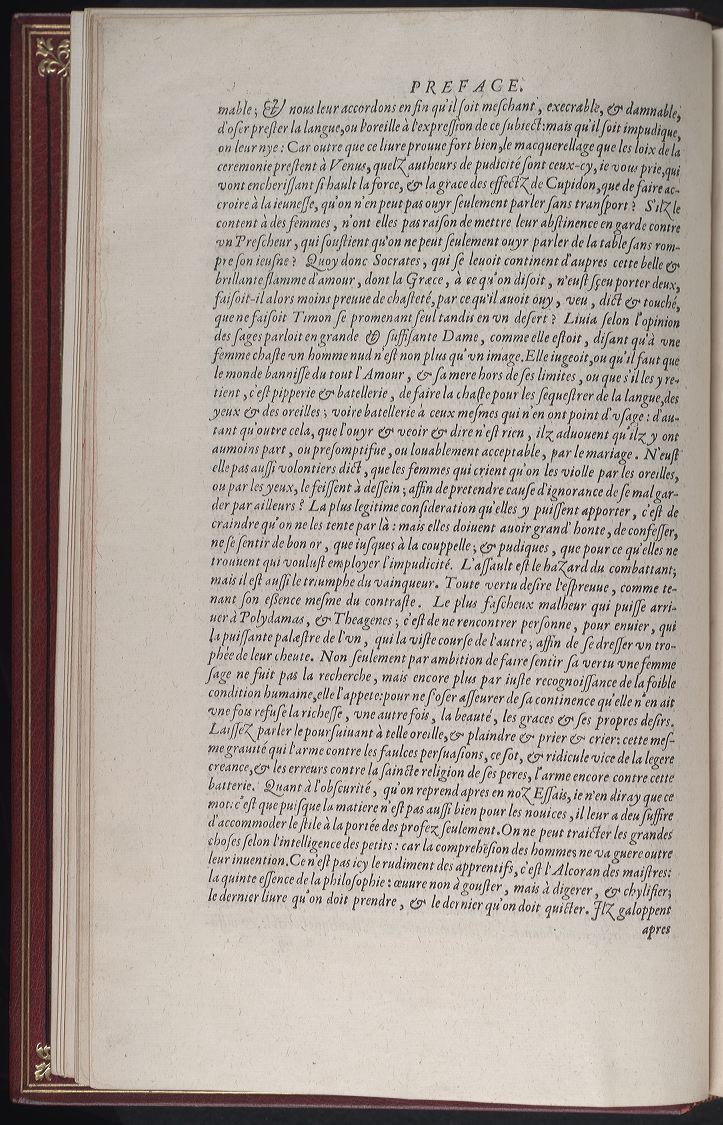 PREFACE.
mable; & nous leur accordons en fin qu'il ſoit meſchant, execrable, & damnable,
d'oſer preſter la langue, ou l'oreille à l'expreſſion de ce ſubiect: mais qu'il ſoit impudique,
on leur nye: Car outre que ce liure prouue fort bien, le macquerellage que les loix de la
ceremonie preſtent à Venus, quelz autheurs de pudicité ſont ceux-cy, ie vous prie, qui
vont encheriſſant ſi hault la force, & la grace des effectz de Cupidon, que de faire ac-
croire à la ieuneſſe, qu'on n'en peut pas ouyr ſeulement parler ſans tranſport? S'ilz le
content à des femmes, n'ont elles pas raiſon de mettre leur abſtinence en garde contre
vn Preſcheur, qui ſouſtient qu'on ne peut ſeulement ouyr parler de la table ſans rom-
pre ſon ieuſne? Quoy donc Socrates, qui ſe leuoit continent d'aupres cette belle &
brillante flamme d'amour, dont la Græce, à ce qu'on diſoit, n'euſt ſçeu porter deux,
faiſoit-il alors moins preuue de chaſteté, par ce qu'il auoit ouy, veu, dict & touché,
que ne faiſoit Timon ſe promenant ſeul tandis en vn deſert? Liuia ſelon l'opinion
des ſages parloit en grande & ſuffiſante Dame, comme elle eſtoit, diſant qu'à vne
femme chaſte vn homme nud n'eſt non plus qu'vn image. Elle iugeoit, ou qu'il faut que
le monde banniſſe du tout l'Amour, & ſa mere hors de ſes limites, ou que s'il les y re-
tient, c'eſt pipperie & batellerie, de faire la chaſte pour les ſequeſtrer de la langue, des
yeux & des oreilles; voire batellerie à ceux meſmes qui n'en ont point d'vſage: d'au-
tant qu'outre cela, que l'ouyr & veoir & dire n'eſt rien, ilz aduouent qu'ilz y ont
aumoins part, ou preſomptifue, ou louablement acceptable, par le mariage. N'euſt
elle pas auſſi volontiers dict, que les femmes qui crient qu'on les violle par les oreilles,
ou par les yeux, le feiſſent à deſſein; affin de pretendre cauſe d'ignorance de ſe mal gar-
der par ailleurs? La plus legitime conſideration qu'elles y puiſſent apporter, c'eſt de
craindre qu'on ne les tente par là: mais elles doiuent auoir grand' honte, de confeſſer,
ne ſe ſentir de bon or, que iuſques à la couppelle; & pudiques, que pour ce qu'elles ne
trouuent qui vouluſt employer l'impudicité. L'aſſault eſt le hazard du combattant;
mais il eſt auſſi le triumphe du vainqueur. Toute vertu deſire l'eſpreuue, comme te-
nant ſon eßence meſme du contraſte. Le plus faſcheux malheur qui puiſſe arri-
uer à Polydamas, & Theagenes; c'eſt de ne rencontrer perſonne, pour enuier, qui
la puiſſante palæſtre de l'vn, qui la viſte courſe de l'autre; affin de ſe dreſſer vn tro-
phée de leur cheute. Non ſeulement par ambition de faire ſentir ſa vertu vne femme
ſage ne fuit pas la recherche, mais encore plus par iuſte recognoiſſance de la foible
condition humaine, elle l'appete: pour ne s'oſer aſſeurer de ſa continence qu'elle n'en ait
vne fois refuſe la richeſſe, vne autre fois, la beauté, les graces & ſes propres deſirs.
Laiſſez parler le pourſuiuant à telle oreille, & plaindre & prier & crier: cette meſ-
me grauité qui l'arme contre les faulces perſuaſions, ce ſot, & ridicule vice de la legere
creance, & les erreurs contre la ſaincte religion de ſes peres, l'arme encore contre cette
batterie. Quant à l'obſcurité, qu'on reprend apres en noz Eſſais, ie n'en diray que ce
mot: c'eſt que puiſque la matiere n'eſt pas auſſi bien pour les nouices, il leur a deu ſuffire
d'accommoder le ſtile à la portée des profez ſeulement. On ne peut traicter les grandes
choſes ſelon l'intelligence des petits: car la comprehẽſion des hommes ne va guere outre
leur inuention. Ce n'eſt pas icy le rudiment des apprentifs, c'eſt l'Alcoran des maiſtres:
la quinte eſſence de la philoſophie: œuure non à gouſter, mais à digerer, & chylifier;
le dernier liure qu'on doit prendre, & le dernier qu'on doit quicter. Ilz galoppent
apres